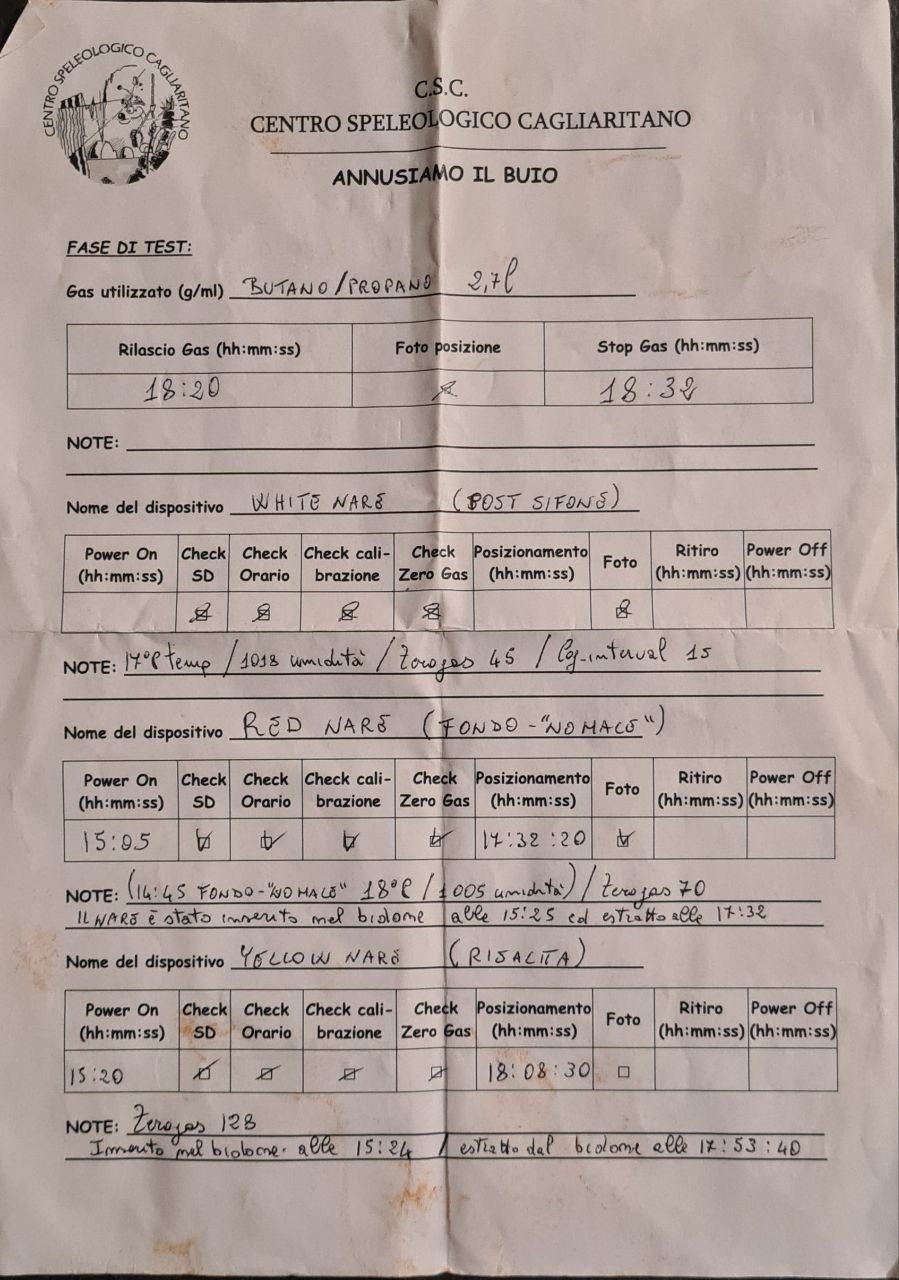 CENTRO SPELEOLOGICO CAGLIARITANO
C.S.C.
CENTRO SPELEOLOGICO CAGLIARITANO
ANNUSIAMO IL BUIO
FASE DI TEST:
Gas utilizzato (g/ml) BUTANO/PROPANO 2,7l
Rilascio Gas (hh:mm:ss) Foto posizione Stop Gas (hh:mm:ss)
18:20 18:32
NOTE:
Nome del dispositivo WHITE NARE (POST SIFONE)
Power On (hh:mm:ss) Check SD Check Orario Check cali-brazione Check Zero Gas Posizionamento (hh:mm:ss) Foto Ritiro (hh:mm:ss) Power Off (hh:mm:ss)
NOTE: 17° temp / 1018 umidità / Zerogas 45 / Log-interval 15
Nome del dispositivo RED NARE (FONDO-"NOMALE")
Power On (hh:mm:ss) Check SD Check Orario Check cali-brazione Check Zero Gas Posizionamento (hh:mm:ss) Foto Ritiro (hh:mm:ss) Power Off (hh:mm:ss)
15:05 17:32:20
NOTE: (14:45 FONDO-"NOMALE" 18° / 1005 umidità) / Zerogas 70
IL NARE è stato inserito nel bidone alle 15:25 ed estratto alle 17:32
Nome del dispositivo YELLOW NARE (RISALITA)
Power On (hh:mm:ss) Check SD Check Orario Check cali-brazione Check Zero Gas Posizionamento (hh:mm:ss) Foto Ritiro (hh:mm:ss) Power Off (hh:mm:ss)
15:20 18:08:30
NOTE: Zerogas 128
Inserito nel bidone alle 15:24 / estratto dal bidone alle 17:53:40